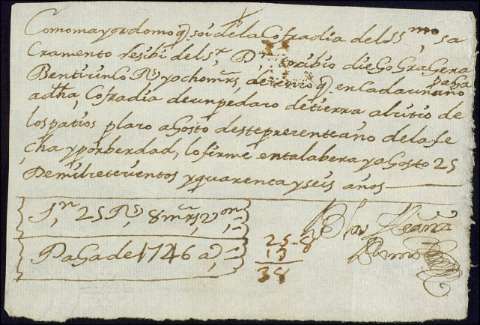 Como mayordomo q̃ soi de la Cofradia del SS.mo sa
cramento resibi del s.r D.n toribio dieGo GraGera
Beintisinco Rs y ocho mrs, de renta q̃ en la da un año paGa
a dha, Cofradia de un pedaro de tierra al sitio de
los patios plazo aGosto deste prezente año de la fe
cha y por berdad, lo firme en talabera y aGosto 25
De mil seteuentos y quarenta y seis años
S.n 25 Rs, 8 mrs, von
PaGa de 1746 as
25-8
13
38
Blas